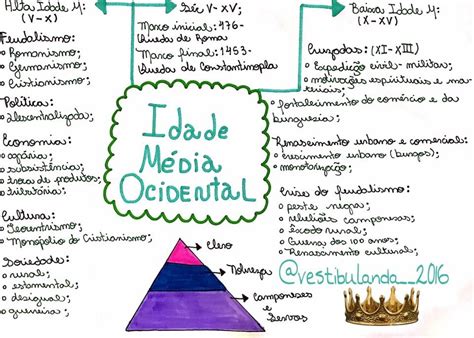 Alta Idade M:
(V-X)
Feudalismo:
Romanismo;
Germanismo;
Cristianismo;
Política:
descentralizada;
Economia:
agrária;
subsistência;
troca de produtos;
tributária;
Cultura:
Teocentrismo;
Monopólio do Cristianismo;
Sociedade:
rural;
estamental;
desigual;
guerreira;
Séc V-XV;
Marco inicial: 476-
Queda de Roma
Marco final: 1453-
Queda de Constantinopla
Idade
Média
Ocidental
Clero
Nobreza
Camponeses
e
Servos
Baixa Idade M:
(X-XV)
Cruzadas: (XI-XIII)
Expedição civil-militar;
motivações espirituais e ma-
teriais;
fortalecimento do comércio e da
burguesia;
Renascimento urbano e comercial:
crescimento urbano (burgos);
Crise do feudalismo:
peste negra;
rebeliões camponesas;
Êxodo rural;
Guerra dos 100 anos;
Renascimento cultural;
@vestibulanda__2016